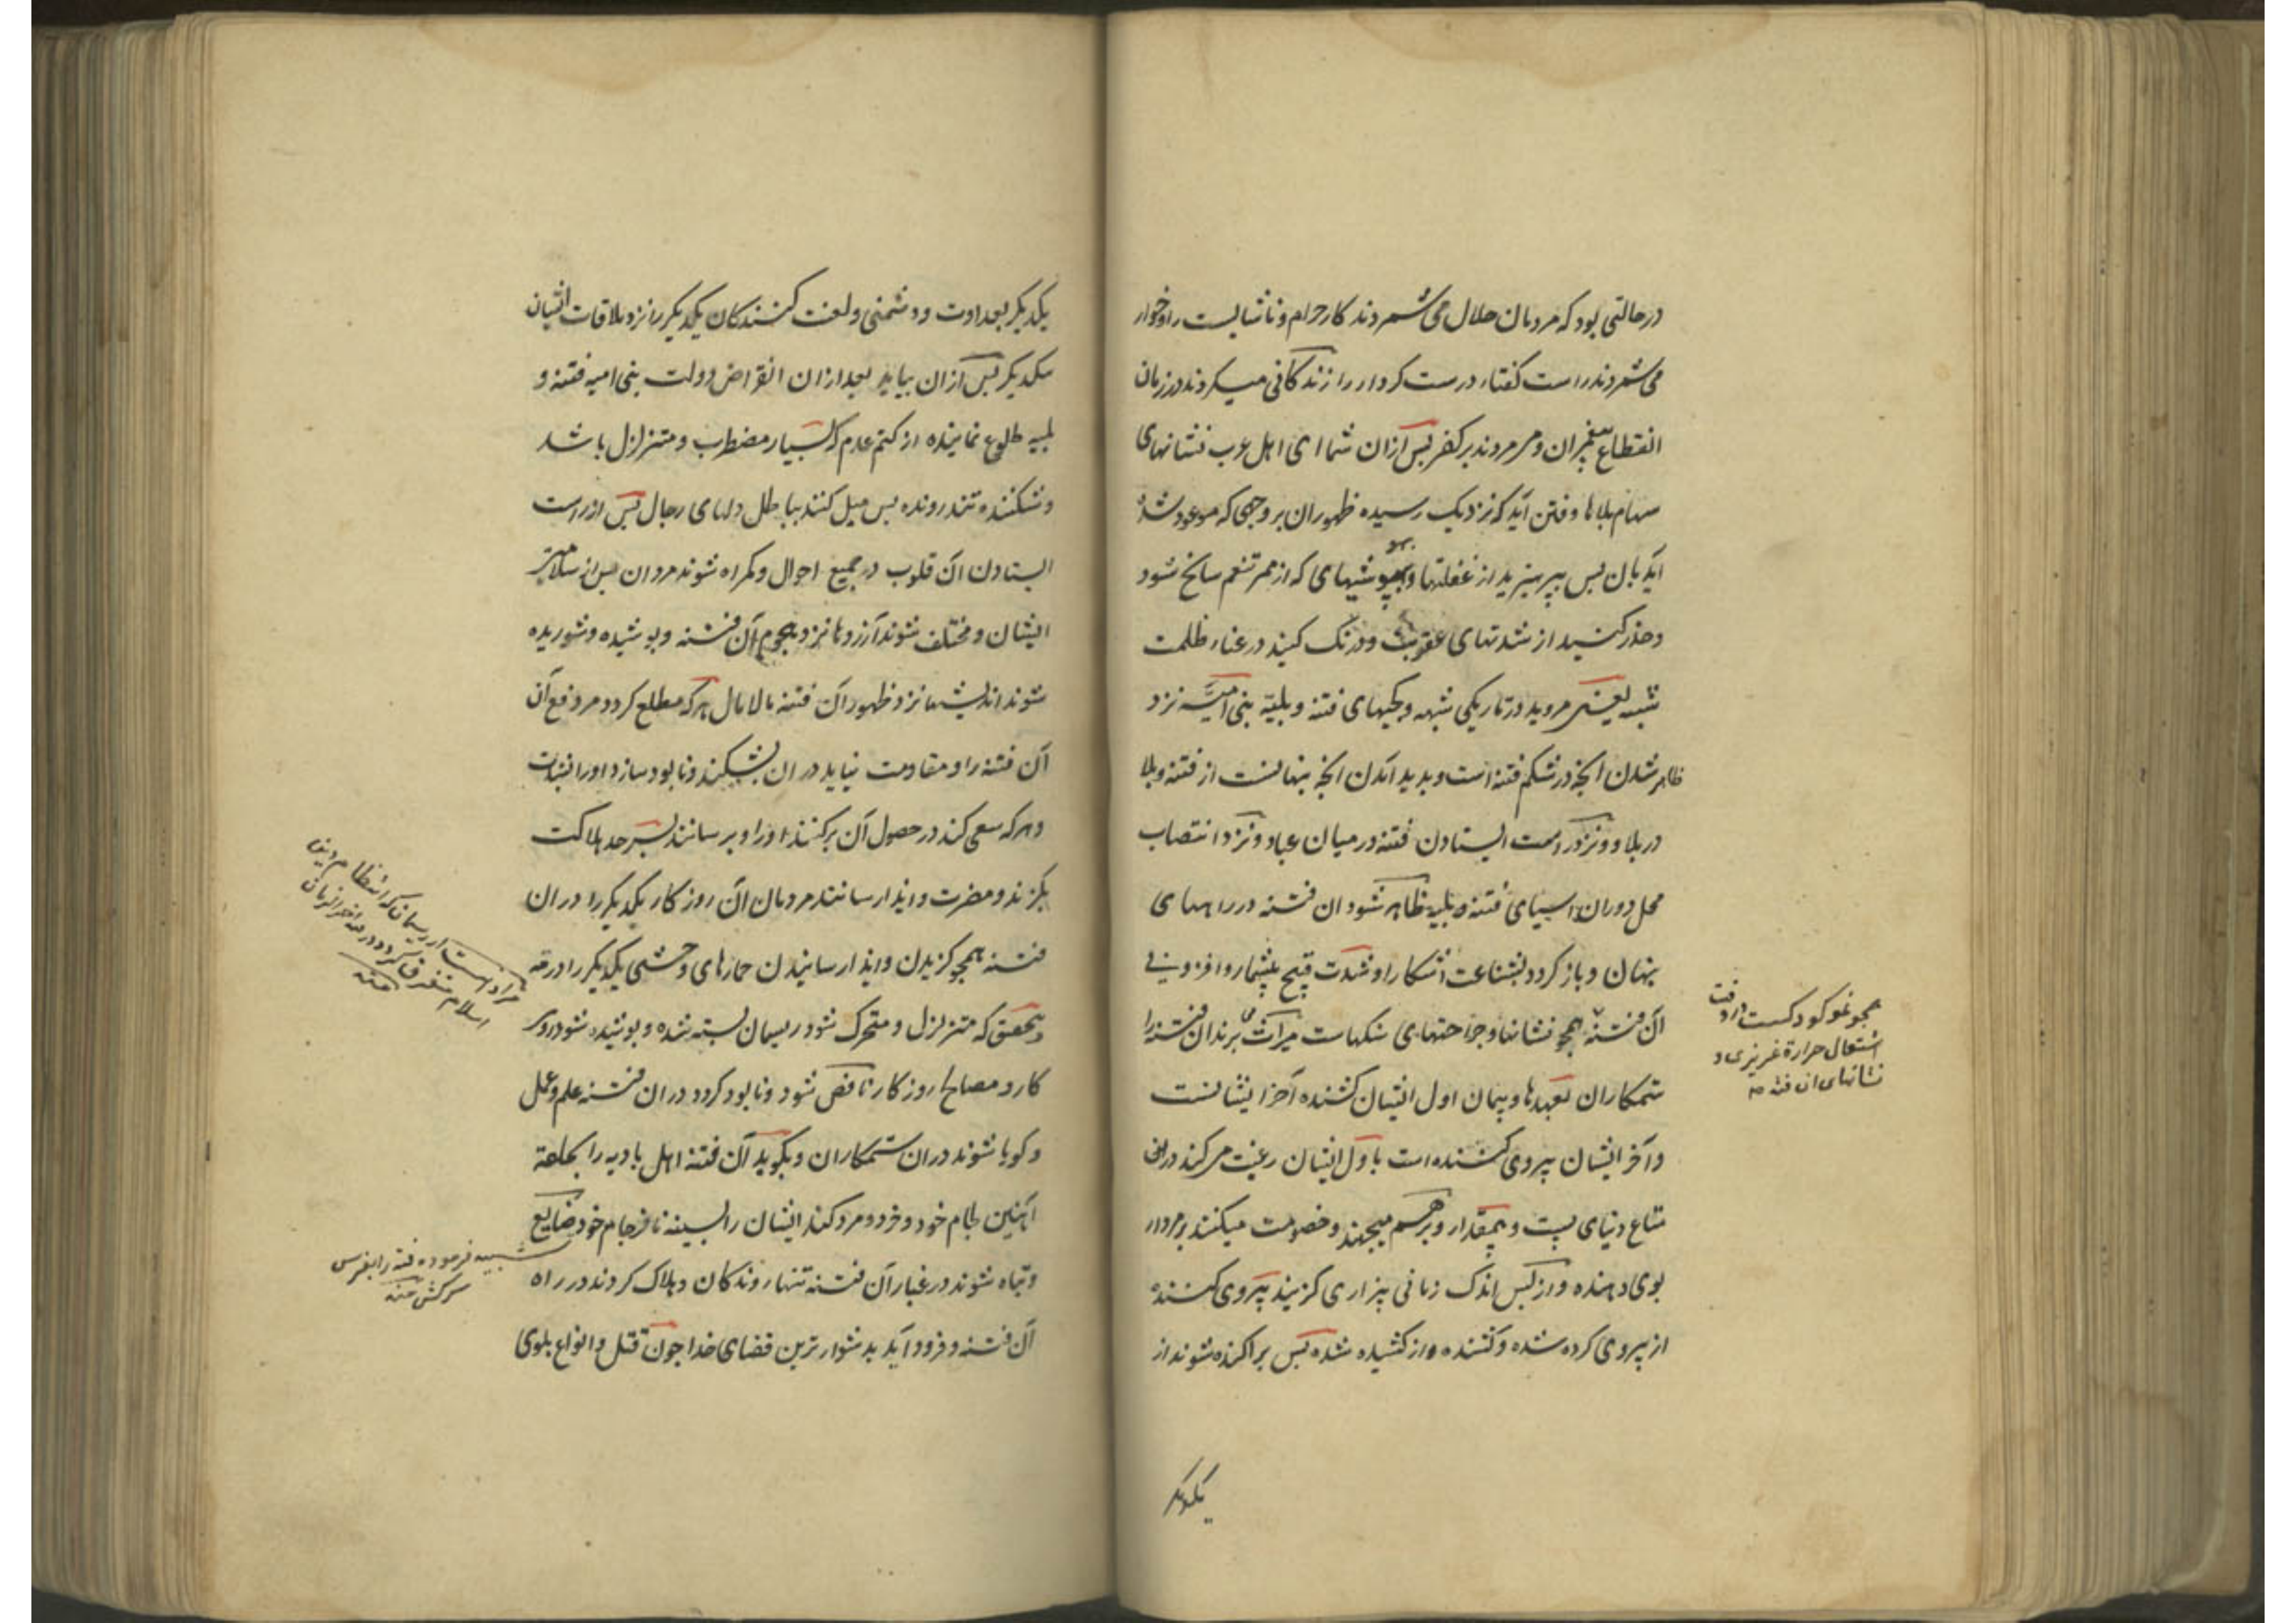 درحالتی بود که مردمان حلال می شمردند کار حرام و ناشایست را و خوار
می شمردند راست کفتار درست کردار را زندکانی میکردند در زمان
انقطاع پیغمبران و می مردند بر کفر پس از ان شما ای اهل عرب نشانهای
سهام بلاها و فتن اید که نزدیک رسیده ظهور ان بر وجهی که موعود شده
اید بان پس بپرهیزید از غفلتها و بیهوشیهای که از ممر تنعم سانح شود
و حذر کنید از شدتهای عقوبت و درنک کنید در غبار ظلمت
شبهه یعنی مروید در تاریکی شبهه و کجیهای فتنه و بلیّه بنی امیّه نزد
ظاهر شدن انچه در شکم فتنه است و پدید امدن انچه پنهانست از فتنه و بلا
در بلا و نزد راست ایستادن فتنه در میان عباد و نزد انتصاب
محل دوران اسیای فتنه و بلیه ظاهر شود ان فتنه در راههای
پنهان و باز کردد بشناعت اشکارا و شدت قبیح بیشمار و افزونی
آن فتنه همچو نشانها و جراحتهای سنکهاست میراث می برند ان فتنه را
ستمکاران بعهدها و پیمان اول ایشان کشنده آخر ایشانست
و آخر ایشان پیروی کننده است باول ایشان رغبت می کنند در این
متاع دنیای پست و بیمقدار و بر هم میجهند و خصومت میکنند بر مردار
بوی دهنده و از پس اندک زمانی بیزاری کزیند پیروی کننده
از پیروی کرده شده و کشنده از کشیده شده پس پراکنده شوند از
یکدیکر
همچو نمو کودکست در وقت
اشتعال حرارة غریزی و
نشانهای ان فتنه
یکدیکر بعداوت و دشمنی و لعنت کنندکان یکدیکر را نزد ملاقات ایشان
بیکدیکر پس از ان بیاید بعد از ان انقراض دولت بنی امیه فتنه و
بلیه طلوع نماینده از کتم عدم که بسیار مضطرب و متزلزل باشد
و شکننده تند رونده پس میل کنند بباطل دلهای رجال پس از راست
ایستادن آن قلوب در جمیع احوال و کمراه شوند مردان پس از سلامتی
ایشان و مختلف شوند آرزوها نزد هجوم آن فتنه و پوشیده و شوریده
شوند اندیشها نزد ظهور آن فتنه مالامال هر که مطلع کردد مر دفع آن
آن فتنه را و مقاومت نماید در ان بشکند و نابود سازد او را
و هر که سعی کند در حصول آن برکنند او را و برسانند بسر حد هلاکت
بکزند و مضرت و ایذا رسانند مردمان آن روزکار یکدیکر را در ان
فتنه همچو کزیدن و ایذا رسانیدن حمارهای وحشی یکدیکر را در رمه
و بتحقیق که متزلزل و متحرک شود ریسمان بسته شده و پوشیده شود روی
کار و مصالح روزکار ناقص شود و نابود کردد در ان فتنه علم و عمل
و کویا شوند در ان ستمکاران و بکوبد آن فتنه اهل بادیه را بحلقه
اهنین لجام خود و خرد و مرد کند ایشان را بسینه نافرجام خود ضایع
و تباه شوند در غبار آن فتنه تنها روندکان و هلاک کردند در راه
آن فتنه و فرود آید بدشوارترین قضای خدا چون قتل و انواع بلوی
مراد است از ریسمان که انتظام
اسلام متفرق کردد در آخر الزمان
منه
تشبیه فرموده فتنه را بفرس
سرکش منه